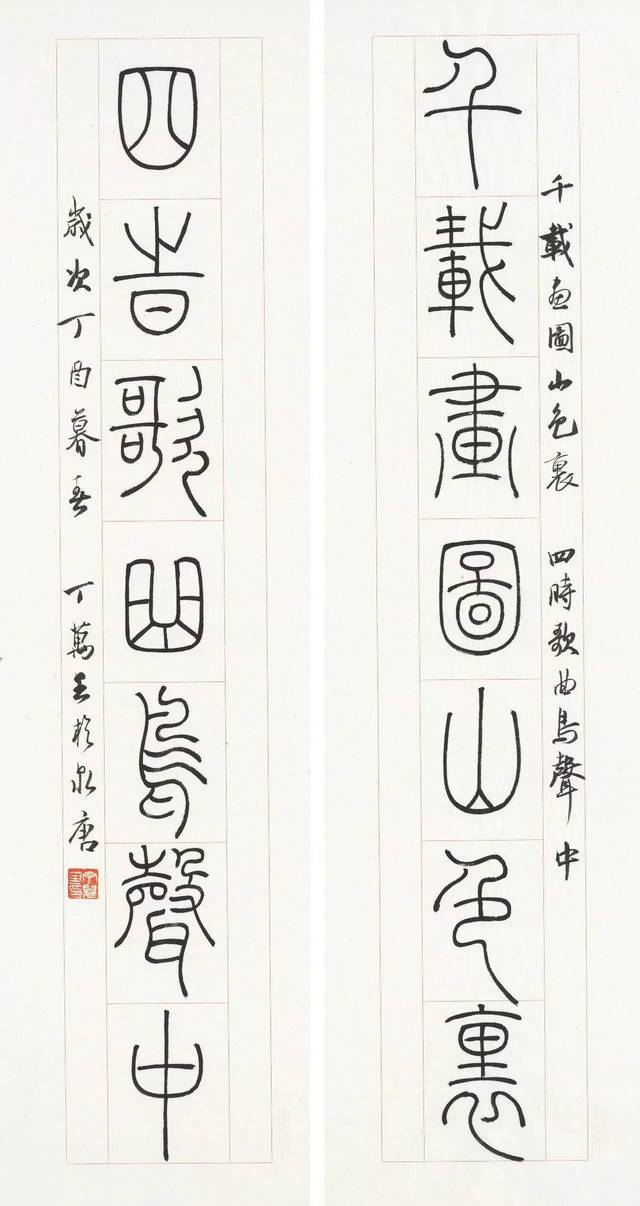 千載畫圖山色裏
千載畫圖山色裏 四時歌曲鳥聲中
四時歌曲鳥聲中
歲次丁酉暮春 丁萬 於泉唐